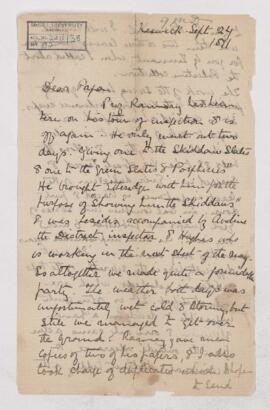 Keswick Sept. 24
1871
Dear Papa,
Prof. Ramsay has been
here on his tour of inspection & is
off again. He only went out two
days. Giving one to the Skiddaw Slates
& one to the "Green Slates & Porphyries".
He brought Etheridge with him for the
purpose of showing him the Skiddaws
& was besides accompanied by Aveline
the District inspector, & Hughes who
is working in the next sheet of the map.
So altogether we made quite a formidable
party. The weather both days was
unfortunately wet cold & stormy, but
still we managed to get over
the ground. Ramsay gave me
copies of two of his papers, & I also
took charge of duplicates which I hope
to send